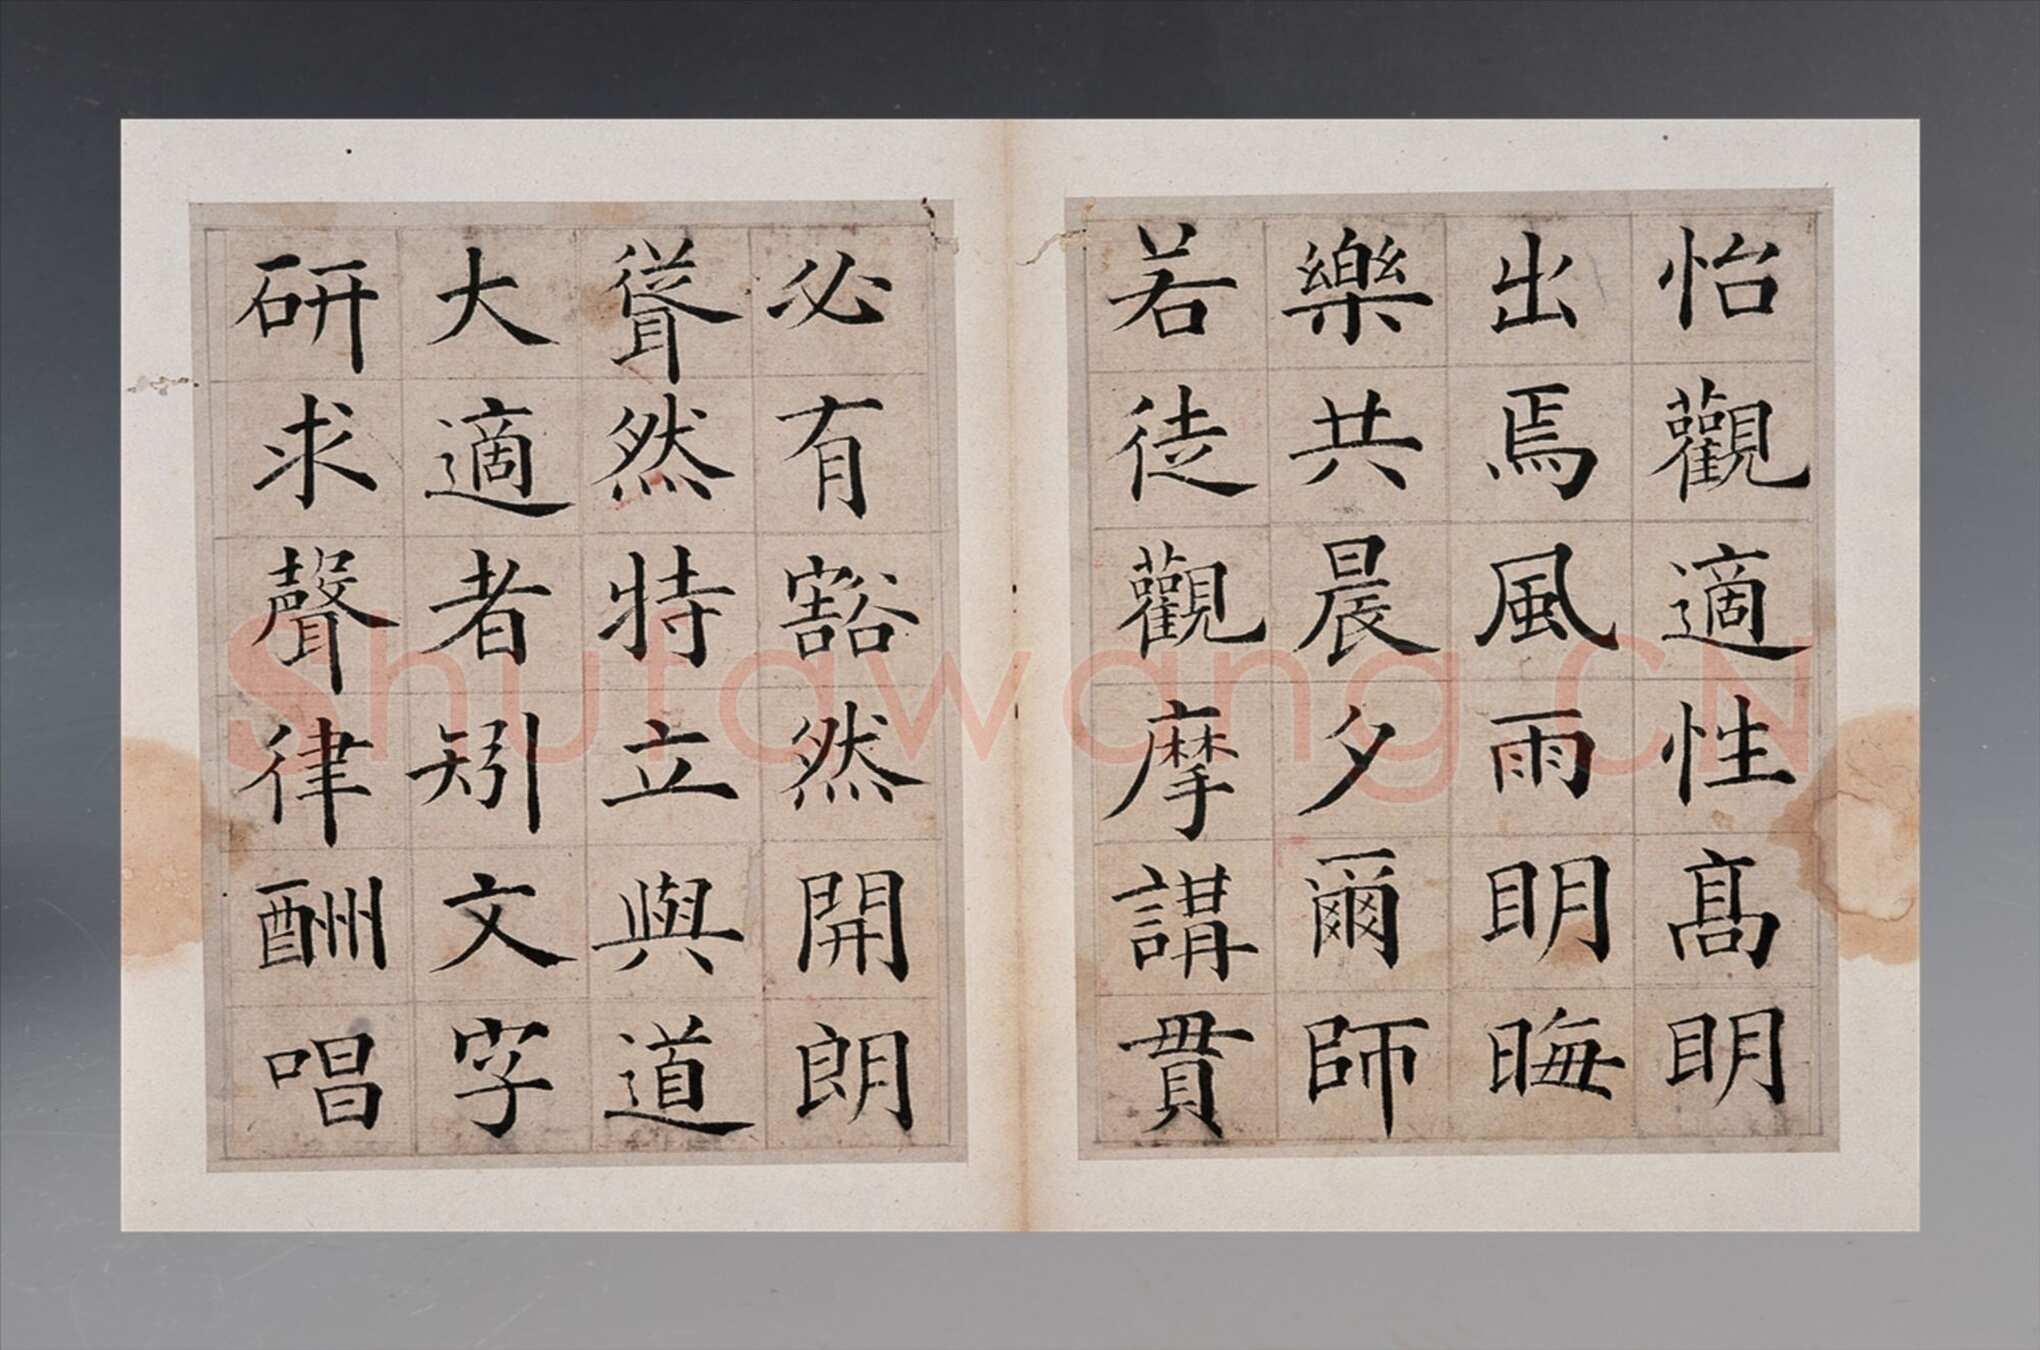 怡觀適性高明
出焉風雨明晦
樂共晨夕爾師
若徒觀摩講貫
必有豁然開朗
聳然特立與道
大適者矧文字
研求聲律酬唱
Shufawang.CN